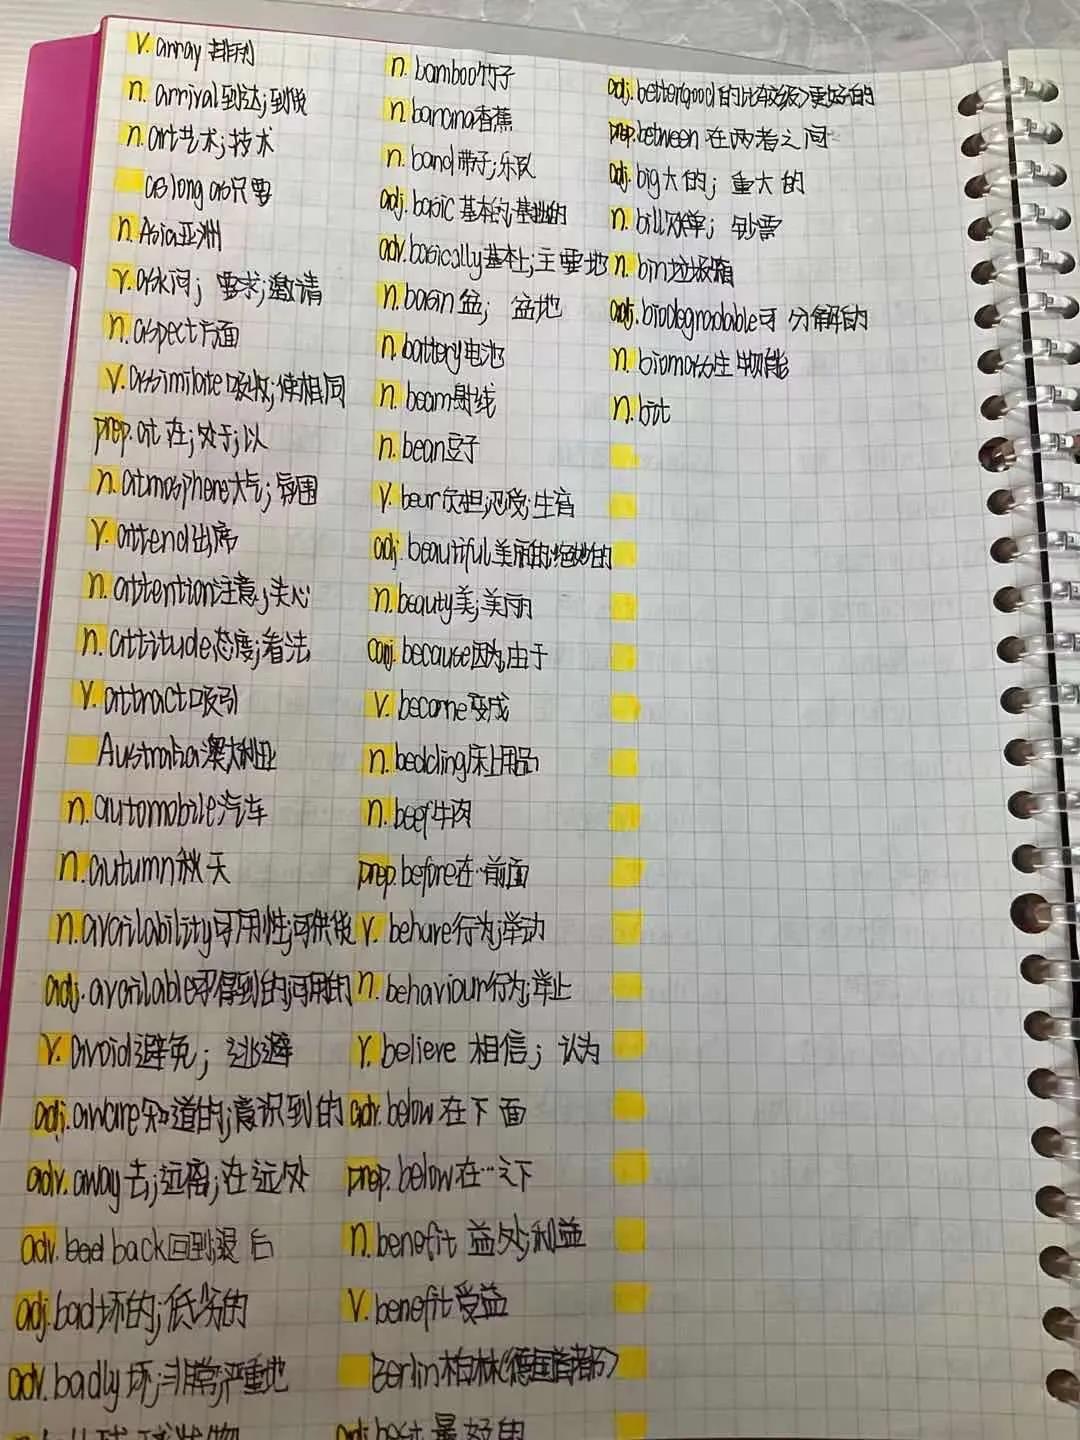 v. array 排列
n. arrival 到达;到货
n. art 艺术;技术
as long as 只要
n. Asia 亚洲
v. ask 问; 要求;邀请
n. aspect 方面
v. assimilate 吸收;使相同
prep. at 在;处于;以
n. atmosphere 大气;氛围
v. attend 出席
n. attention 注意;关心
n. attitude 态度;看法
v. attract 吸引
Australia 澳大利亚
n. automobile 汽车
n. autumn 秋天
n. availability 可用性;可供货
adj. available 可得到的;可用的
v. avoid 避免; 逃避
adj. aware 知道的;意识到的
adv. away 去;远离;在远处
adv. back 回到;退后
adj. bad 坏的;低劣的
adv. badly 坏;非常;严重地
球;球状物
n. bamboo 竹子
n. banana 香蕉
n. band 带子;乐队
adj. basic 基本的;基础的
adv. basically 基本上;主要地
n. basin 盆; 盆地
n. battery 电池
n. beam 射线
n. bean 豆子
v. bear 承担;忍受;生育
adj. beautiful 美丽的;绝妙的
n. beauty 美;美丽
conj. because 因为;由于
v. become 变成
n. bedding 床上用品
n. beef 牛肉
prep. before 在…前面
v. behave 行为;举动
n. behaviour 行为;举止
v. believe 相信; 认为
adv. below 在下面
prep. below 在…之下
n. benefit 益处;利益
v. benefit 受益
Berlin 柏林(德国首都)
adj. best 最好的
adj. better(good的比较级)更好的
prep. between 在两者之间
adj. big 大的; 重大的
n. bill 账单; 钞票
n. bin 垃圾箱
adj. biodegradable 可分解的
n. biomass 生物能
n. bit 比